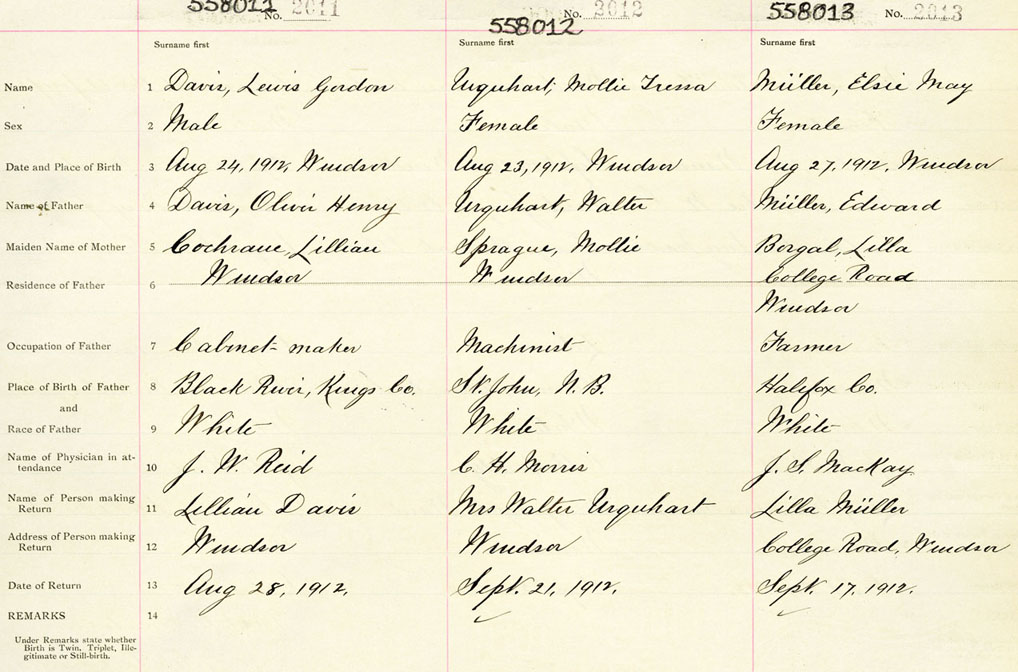 558011 No. 2011 558012 No. 2012 558013 No. 2013
Surname first Surname first Surname first
Name 1 Davis, Lewis Gordon Urquhart, Mollie Tressa Müller, Elsie May
Sex 2 Male Female Female
Date and Place of Birth 3 Aug 24, 1912, Windsor Aug 23, 1912, Windsor Aug 27, 1912, Windsor
Name of Father 4 Davis, Oliver Henry Urquhart, Walter Müller, Edward
Maiden Name of Mother 5 Cochrane, Lillian Sprague, Mollie Borgal, Lilla
Residence of Father 6 Windsor Windsor College Road
Windsor
Occupation of Father 7 Cabinet-maker Machinist Farmer
Place of Birth of Father 8 Black River, Kings Co. St. John, N.B. Halifax Co.
and
Race of Father 9 White White White
Name of Physician in at-
tendance 10 J. W. Reid C. H. Morris J. S. MacKay
Name of Person making
Return 11 Lillian Davis Mrs Walter Urquhart Lilla Müller
Address of Person making
Return 12 Windsor Windsor College Road, Windsor
Date of Return 13 Aug 28, 1912. Sept. 21, 1912. Sept. 17, 1912.
REMARKS 14
Under Remarks state whether
Birth is Twin, Triplet, Ille-
gitimate or Still-birth.